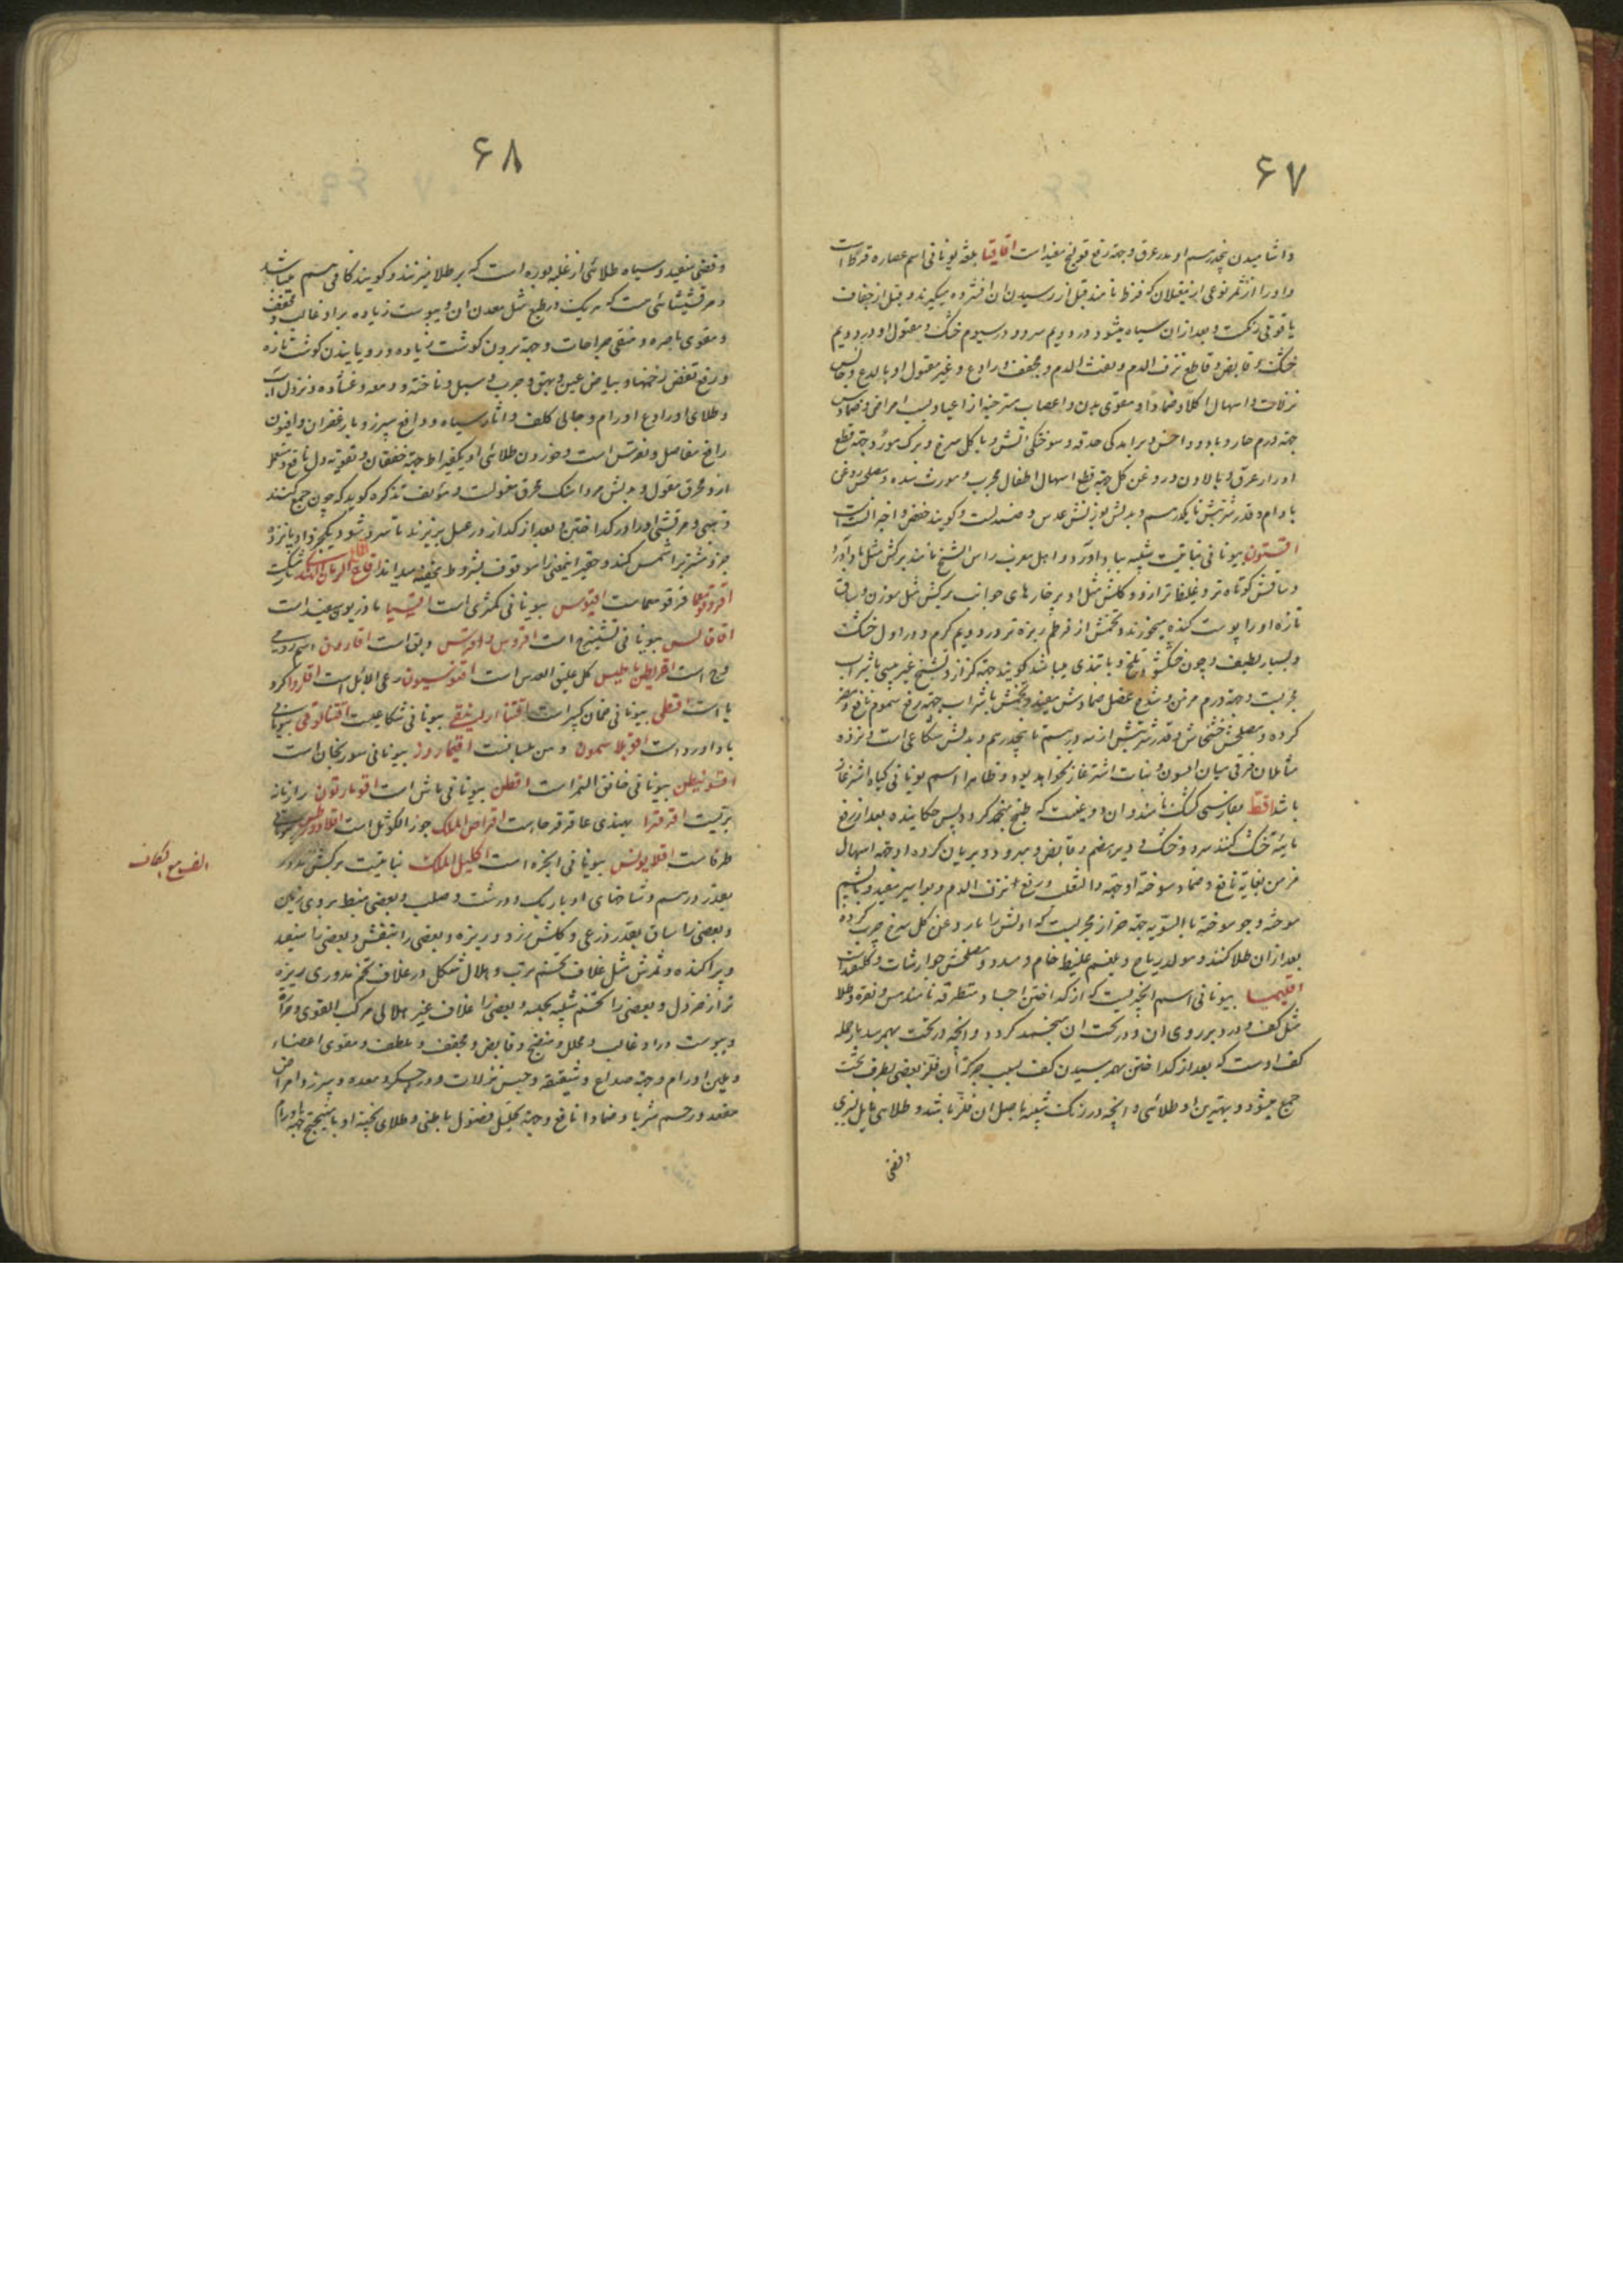 ۶۷
واشامیدن یکدرسم او مدر عرق وجهة رفع قولنج مفیداست اقاقیا بلغة یونانی اسم عصاره قرظ است
واورا از ثمر نوعی از مغیلان که قرظ نامند قبل از رسیدن ان افشرده میگیرند و قبل از جفاف
یاقوتی رنکست و بعد از ان سیاه میشود در دویم سرد و در سیوم خشک و مغسول او در دویم
خشک و قابض و قاطع نزف الدم و نفث الدم و مجفف و رادع و غیر مغسول او با لذع و حابس
نزلات و اسهال اکلا و ضمادا و مقوی بدن و اعصاب مسترخیه از اعیا و امراض و ضمادش
جهة ورم حار و باد و داخس و برامدکی حدقه و سوختکی اتش و با کل سرخ و برک مورد جهة قطع
ادرار عرق و بالادن و روغن کل جهة قطع اسهال اطفال مجرب و مورث سده و مصلحش روغن
بادام و قدر شربتش تا یکدرسم و بدلش بوزنش عدس و صندلست و کویند حضض
افستون بیونانی نباتیست شبیه بباداورد و اهل مغرب راس الشیخ نامند برکش مثل باداورد
و ساقش کوتاه تر و غلیظ تر ازو و کلش مثل او پر خارهای جوانب برکش مثل سوزن و ساق
تازه او را پوست کنده میخورند و تخمش از قرطم ریزه تر در دویم کرم و در اول خشک
و بسیار لطیف و چون خشک شود تلخ و با تندی میباشد کویند جهة کزاز و تشنج غیر یبسی با شراب
مجربست و جهة ورم مزمن و شدخ عضل ضمادش مفید و تخمش با شراب جهة رفع سموم نافع و مضر
کرده و مصلحش خشخاش و قدر شربتش از سه درسم تا پنجدرسم و بدلش شکاعی است و نزد
متاملان فرقی میان السون و نبات اشترغاز نخواهد بود و ظاهرا اسم یونانی کیاه اشترغاز
باشد اقط بفارسی کشک نامند و ان دوغیست که بطبخ منجمد کردد پس چکانیده بعد از رفع
مایئه خشک کنند سرد و خشک و دیر هضم و قابض و مبرود و بریان کرده او جهة اسهال
مزمن بغایة نافع و ضماد سوخته او جهة داء الثعلب و رفع نزف الدم و بواسیر مفید و با پشم
سوخته و جو سوخته بالسویه جهة حزاز مجربست که اولش را با روغن کل سرخ چرب کرده
بعد از ان طلا کنند و مولد ریاح و بلغم غلیظ خام و سدد و مصلحش جوارشات و کلقند است
اقلیمیا بیونانی اسم انچیزیست که از کداختن اجساد متطرقه مانند مس و نقره و طلا
مثل کف و درد بر روی ان و در تحت ان منجمد کردد و انچه در تحت بهم رسد بار جمله
کف اوست که بعد از کداختن بهم رسیدن کف بسبب حرکت ان فلز بعضی بطرف تحت
جمع میشود و بهترین او طلائی و انچه در رنک شبیه باصل ان فلز باشد و طلائی مایل بسرخی
و فضی
۶۸
و فضی سفید و سیاه طلائی از غلبه بوره است که بر طلا میزنند و کویند کافی هم میباشد
و مرقشیشائی است که هر یک در طبع مثل معدن ان و یبوست زیاده بر او غالب و مجفف
و مقوی باصره و منقی جراحات و جهة بردن کوشت زیاده و رویانیدن کوشت تازه
و رفع تعفن زخمها و بیاض عین و بهق و جرب و سبل و ناخنه و دمعه و غشاوه و نزول آب
و طلای او رادع اورام و جالی کلف و اثار سیاه و دافع سپرز و با زعفران و افیون
رافع مفاصل و نقرس است و خوردن طلائی او یکقیراط جهة خفقان و تقویة دل نافع
ازو محرق مغسول و بدلش مرداسنک محرق مغسولست و مؤلف تذکره کوید که چون جمع کنند
ذهبی و مرقشی او را در کداختن و بعد از کداز در عسل بریزند تا سرد شود و یکجزو او پانزده
جزو مشتری را شمس کند و حقیر اینمعنی را موقوف بشروط خفیه میداند اقاع الرمان الهندی ناغیست
اقروقومعما قرقومعماست اقیوس بیونانی کمثری است اقشیا ماذریون سفید است
اقاقالس بیونانی تشمیزج است اقروس و اقرتس وبق است اقارون اسم رومی
وج است اقریطن باطیس کل علیق القدس است اقنوسیون رعی الابل است اقاروا کرویا
یا است اقطی بیونانی خمان کبیر است اقتنا ارلینقی بیونانی شکاعیست اقتنالوقی بیونانی
باداورد است اقوبلاسمون دهن بلسانست اقیمارون بیونانی سورنجان است
اقونیطن بیونانی خانق النمر است اقطن بیونانی ماش است اقومارثون رازیانه
بریست اقرقرا بهندی عاقرقرحاست اقراص الملک جوز الکوثل است
طرفاست اقلابولس بیونانی انجره است اکلیل الملک نباتیست برکش مدور
بقدر درسم و شاخهای او باریک و درشت و صلب و بعضی منبسط بروی زمین
و بعضی را ساق بقدر ذرعی و کلش زرد و ریزه و بعضی را بنفش و بعضی را سفید
و پراکنده و ثمرش مثل غلاف تخشم مرتب و هلال شکل و در غلاف تخم مدوری ریزه
تر از خردل و بعضی را تخشم شبیه بحلبه و بعضی را غلاف غیر هلالی مرکب القوی و حرارة
و یبوست در او غالب و محلل و منضج و قابض و مجفف و ملطف و مقوی اعضاء
و ملین اورام و جهة صداع و شقیقه و حبس نزلات و درد جکر و معده و سپرز و امراض
مقعد و رحم شربا و ضمادا نافع و جهة تحلیل فضول باطنی و طلای پخته او با میپختج جهة اورام
الف مع الکاف